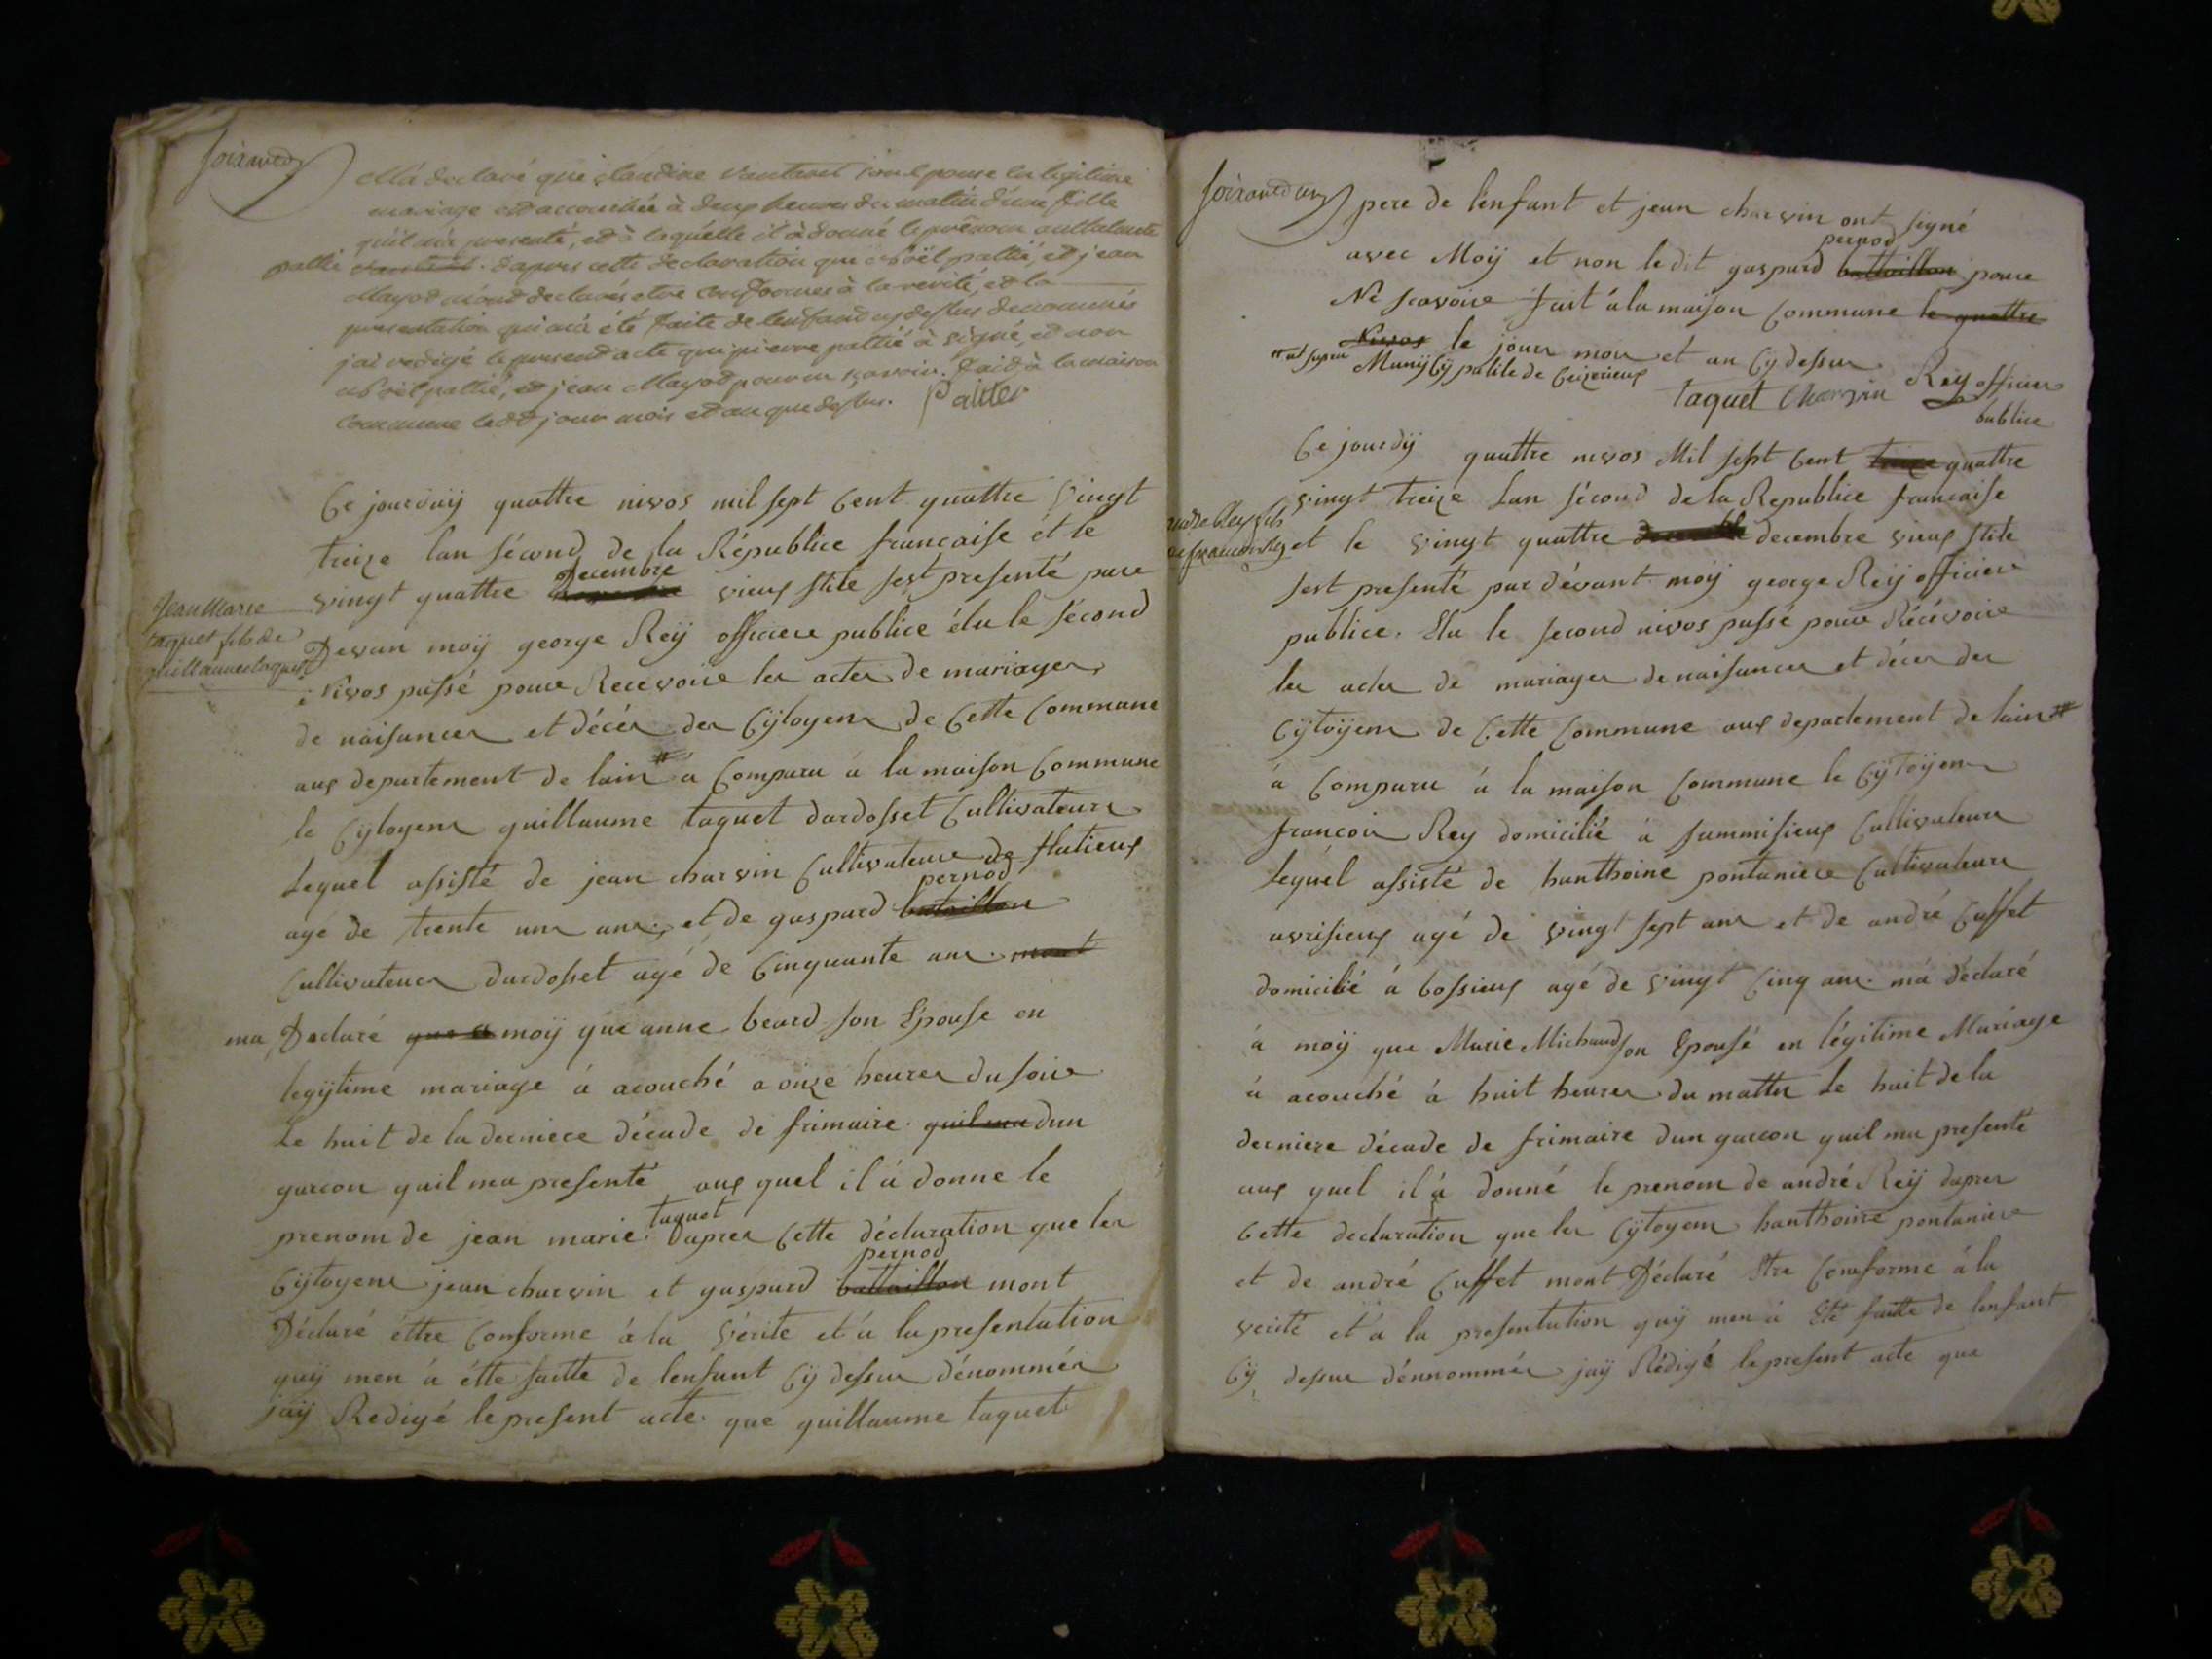 Soixante
M'a déclaré que claudine vautaret son epouse en legitime
mariage est accouchée à deux heures du matin d'une fille
qu'il m'a presenté, et à laquélle il à donné le prénom
pattié d'apres cette declaration que Noël pattié, et jean
Mayod m'ont declarés etre conformes à la vérité, et la
presentation qui m'a été faite de lenfand cy dessus denommés
j'ai redigé le present acte que pierre pattié à signé, et non
Noël pattié, et jean Mayod pour ne sçavoir. Fait à la maison
commune ledit jour mois et an que dessus. Pattier
Ce jourduÿ quattre nivos mil sept Cent quattre Vingt
treize lan sécond de la République francaise et le
Decembre
vingt quattre vieux stile sest presenté pare
Jean Marie
taquet fils de
guillaume taquet
Devan moÿ george Reÿ officiere publice élu le sécond
Nivos passé poure Recevoire les actes de mariages,
de naisances et décés des Cÿtoyens de Cette Commune
aux departement de lain # a Comparu a la maison Commune
le Cÿtoyens guillaume taquet dardosset Cultivateurs
Lequel assisté de jean charvin Cultivateure de flatieux
pernod
agé de trente un ans, et de gaspard bataillon
Cultivateur dardosset agé de Cinquante ans. mont
ma Declaré que a moÿ que anne beard son Epouse en
legÿtime mariage à acouché a onze heures du soire
Le huit de la derniere décade de frimaire. quil ma dun
garcon quil ma presenté aux quel il à donne le
taquet
prenom de jean marie. Dapres Cette déclaration que les
pernod
Cÿtoyens jean charvin et gaspard battaillon mont
Déclaré éttre Conforme à la Vérité et à la presentation
quÿ men à étte faitte de lenfant Cÿ dessus dénommés
jaÿ Redigé le present acte. que guillaume taquet
Soixante un
pere de lenfant et jean charvin ont signé
pernod
avec Moÿ et non le dit gaspard battaillon poure
Ne scavoire Fait à la maison Commune le quattre
Nivos le jour mois et an Cÿ dessus
Munÿ Cÿ palite de Ceizerieux
Taquet Charvin Reÿ officier
publice
Ce jourdÿ quattre nivos Mil sept Cent treize quattre
vingt treize Lan sécond de la Republice francaise
andré Rey fils
de francois Rey
et le vingt quattre decembre vieux stile
sest presenté par dévant moÿ george Reÿ officiere
publice. Elu le second nivos passé poure Récévoire
les actes de mariages de naisances et déces des
Cÿtoÿens de Cette Commune aux departement de lain #
à Comparu à la maison Commune le Cÿtoÿens
françois Rey domicilié à Cultivateure
Lequel assisté de hanthoine pontaniere Cultivateure
avrisieux agé de vingt sept ans et de andré Cuffet
domicilié à bossieux agé de vingt Cinq ans. ma déclaré
à moÿ que Marie Michaud son Epousé en légitime Mariage
à acouché à huit heures du mattin Le huit de la
derniere décade de frimaire dun garcon quil ma presenté
aux quel il à donné le prenom de andré Reÿ dapres
Cette declaration que les Cÿtoyens hanthoine pontaniere
et de andré Cuffet mont Déclaré Etre Conforme à la
verité et à la presentation quÿ men à Eté faitte de lenfant
Cÿ dessus dénnommés jaÿ Rédigé le present acte que